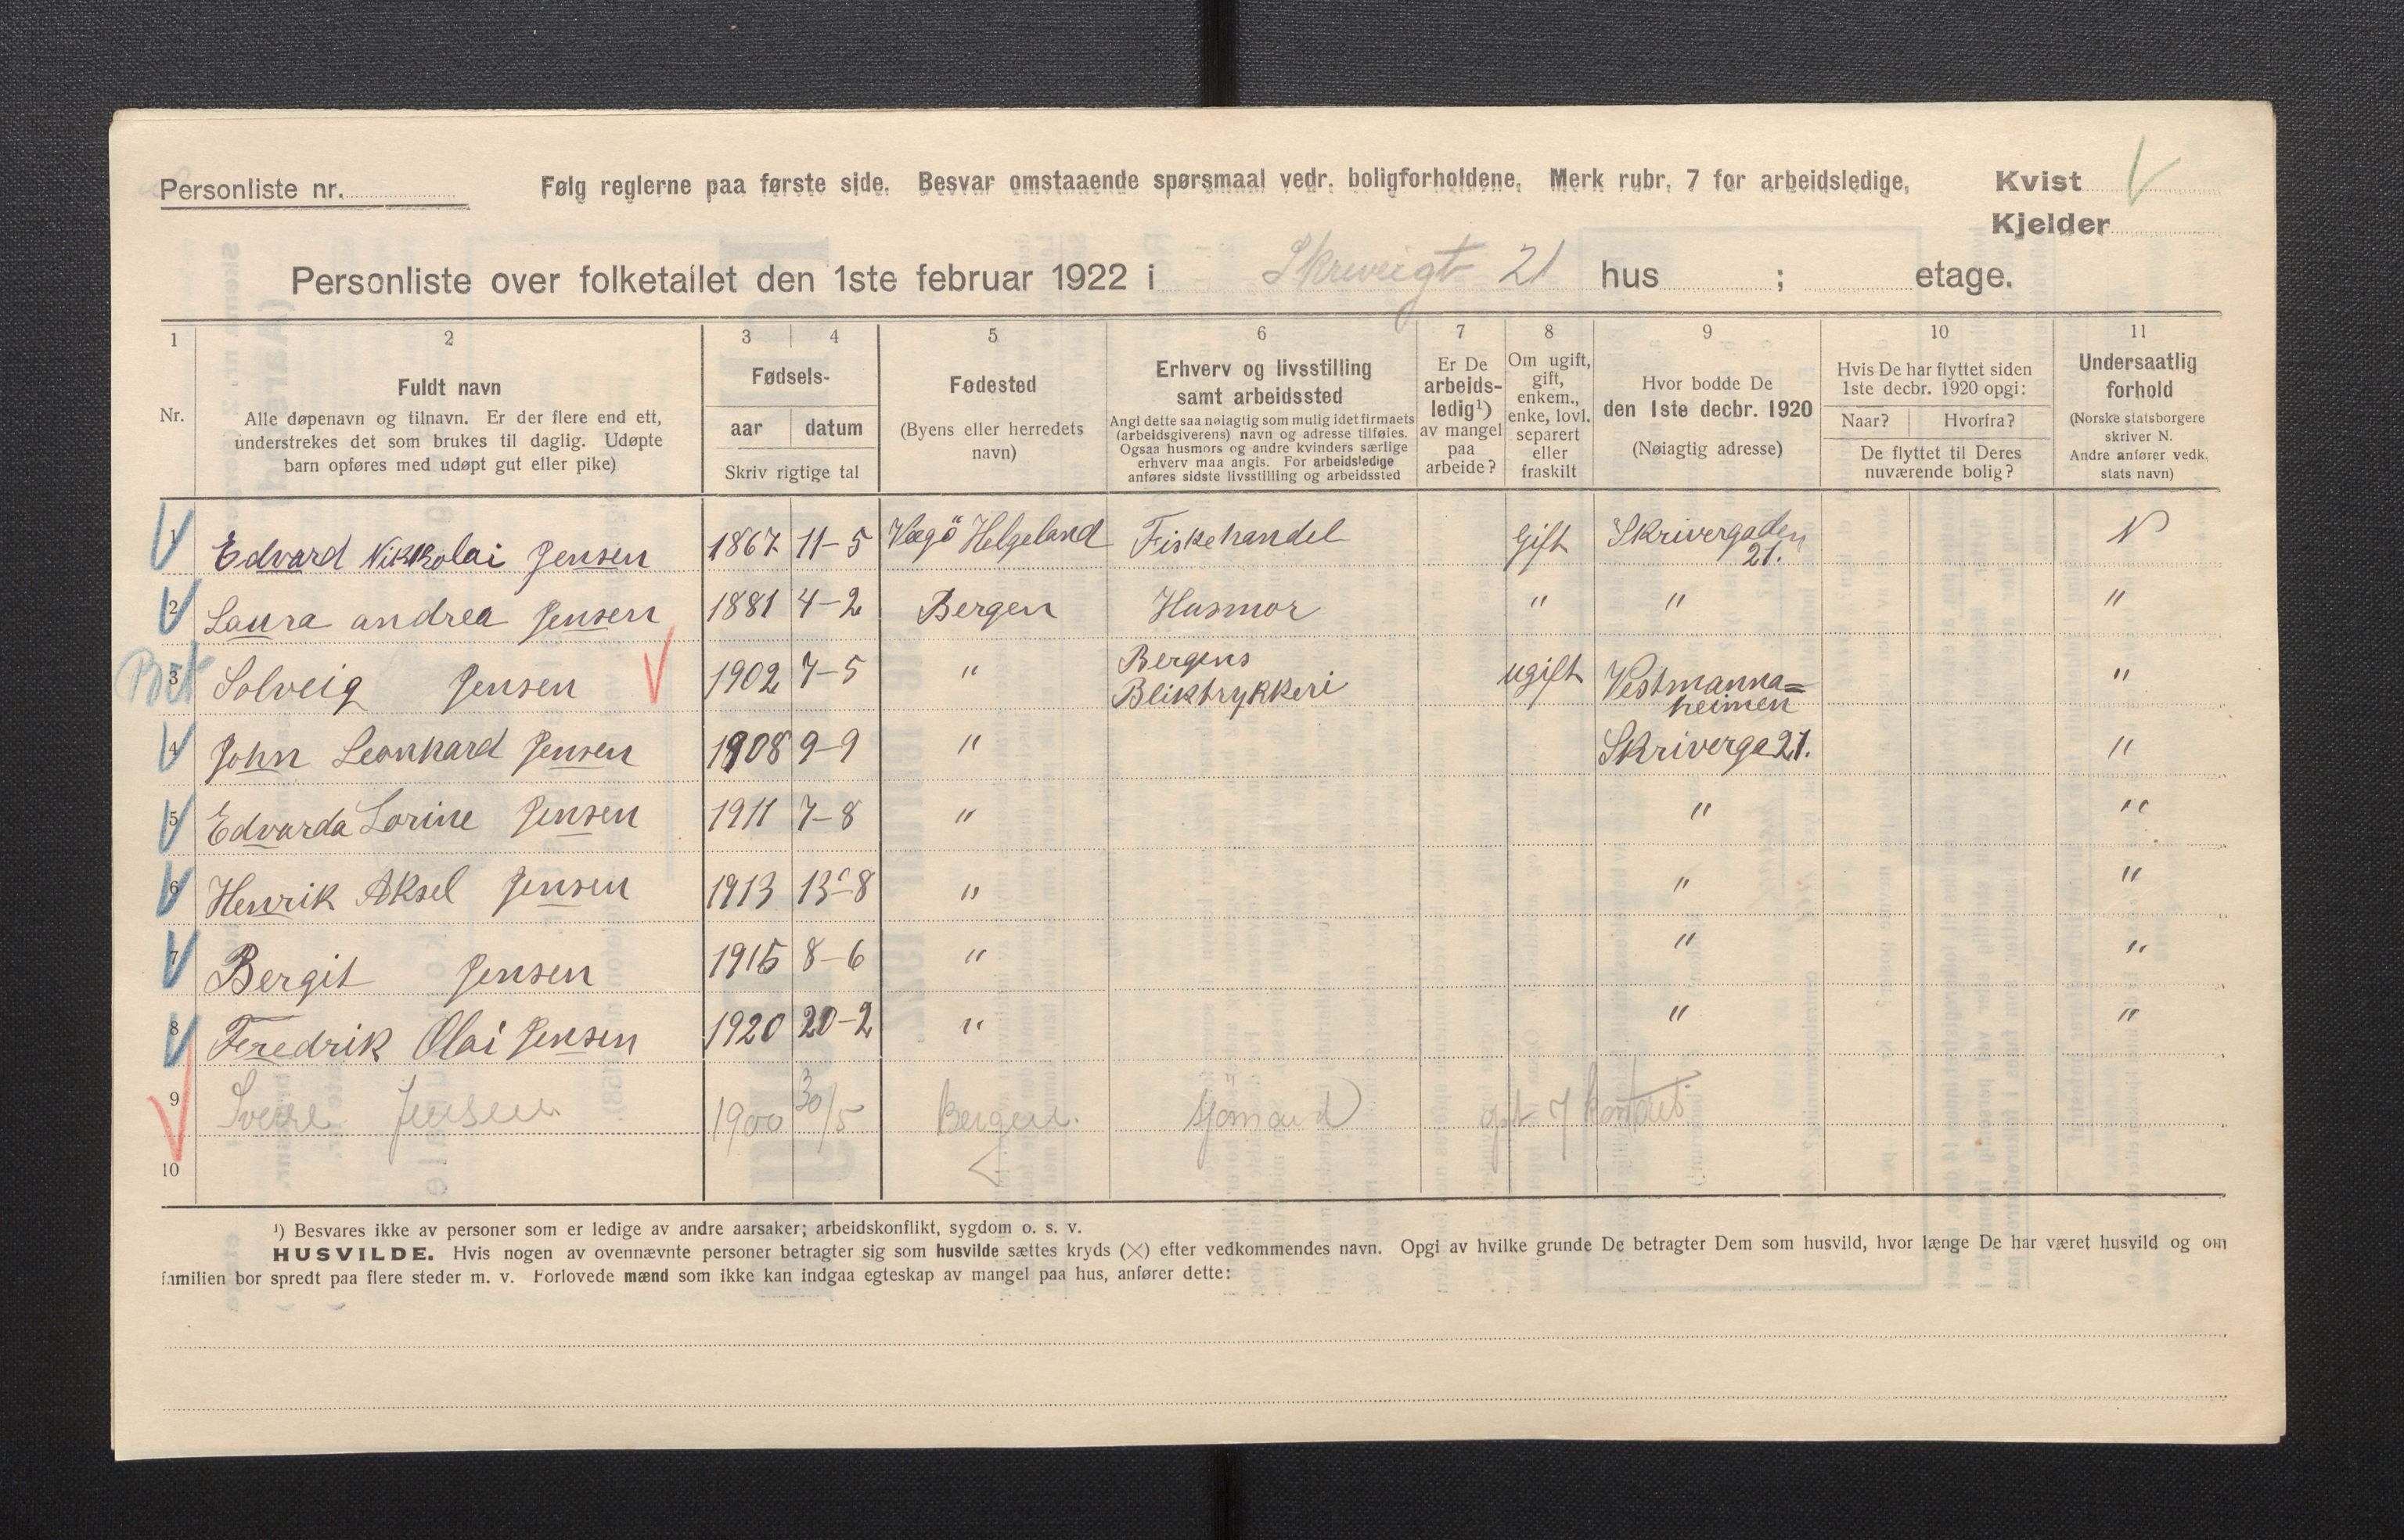 Personliste nr.
Følg reglerne paa første side. Besvar omstaaende spørsmaal vedr. boligforholdene. Merk rubr. 7 for arbeidsledige,
Kvist
Kjelder
Personliste over folketallet den 1ste februar 1922 i 21 hus ; etage.
1 2 3 4 5 6 7 8 9 10 11
Nr.
Fuldt navn
Alle døpenavn og tilnavn. Er der flere end ett,
understrekes det som brukes til daglig. Udøpte
barn opføres med udøpt gut eller pike)
Fødsels-
aar datum
Skriv rigtige tal
Fødested
(Byens eller herredets
navn)
Erhverv og livsstilling
samt arbeidssted
Angi dette saa nøiagtig som mulig idet firmaets
(arbeidsgiverens) navn og adresse tilføies.
Ogsaa husmors og andre kvinders særlige
erhverv maa angis. For arbeidsledige
anføres sidste livsstilling og arbeidssted
Er De
arbeids-
ledig¹)
av mangel
paa
arbeide?
Om ugift,
gift,
enkem.,
enke, lovl.
separert
eller
fraskilt
Hvor bodde De
den 1ste decbr. 1920
(Nøiagtig adresse)
Hvis De har flyttet siden
1ste decbr. 1920 opgi:
Naar? Hvorfra?
De flyttet til Deres
nuværende bolig?
Undersaatlig
forhold
(Norske statsborgere
skriver N.
Andre anfører vedk.
stats navn)
1 Edvard Nikkolai Jensen 1867 11-5 Vægö Helgeland Fiskehandel Gift Skrivergaden 21. N
2 Laura andrea Jensen 1881 4-2 Bergen Husmor " " "
3 Solveig Jensen 1902 7-5 " Bergens Bliktrykkeri ugift Vestmanna=heimen "
4 John Leonhard Jensen 1908 9-9 " Skriverga 21. "
5 Edvarda Lorine Jensen 1911 7-8 " " "
6 Henrik Aksel Jensen 1913 13-8 " " "
7 Bergit Jensen 1915 8-6 " " "
8 Fredrik Olai Jensen 1920 20-2 " " "
9 Sverre Jensen 1900 30/5 Bergen. Sjömand
10
¹) Besvares ikke av personer som er ledige av andre aarsaker; arbeidskonflikt, sygdom o. s. v.
HUSVILDE. Hvis nogen av ovennævnte personer betragter sig som husvilde sættes kryds (×) efter vedkommendes navn. Opgi av hvilke grunde De betragter Dem som husvild, hvor længe De har været husvild og om
familien bor spredt paa flere steder m. v. Forlovede mænd som ikke kan indgaa egteskap av mangel paa hus, anfører dette: